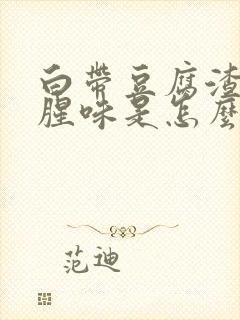 白带豆腐渣
腥味是怎麽
范迪